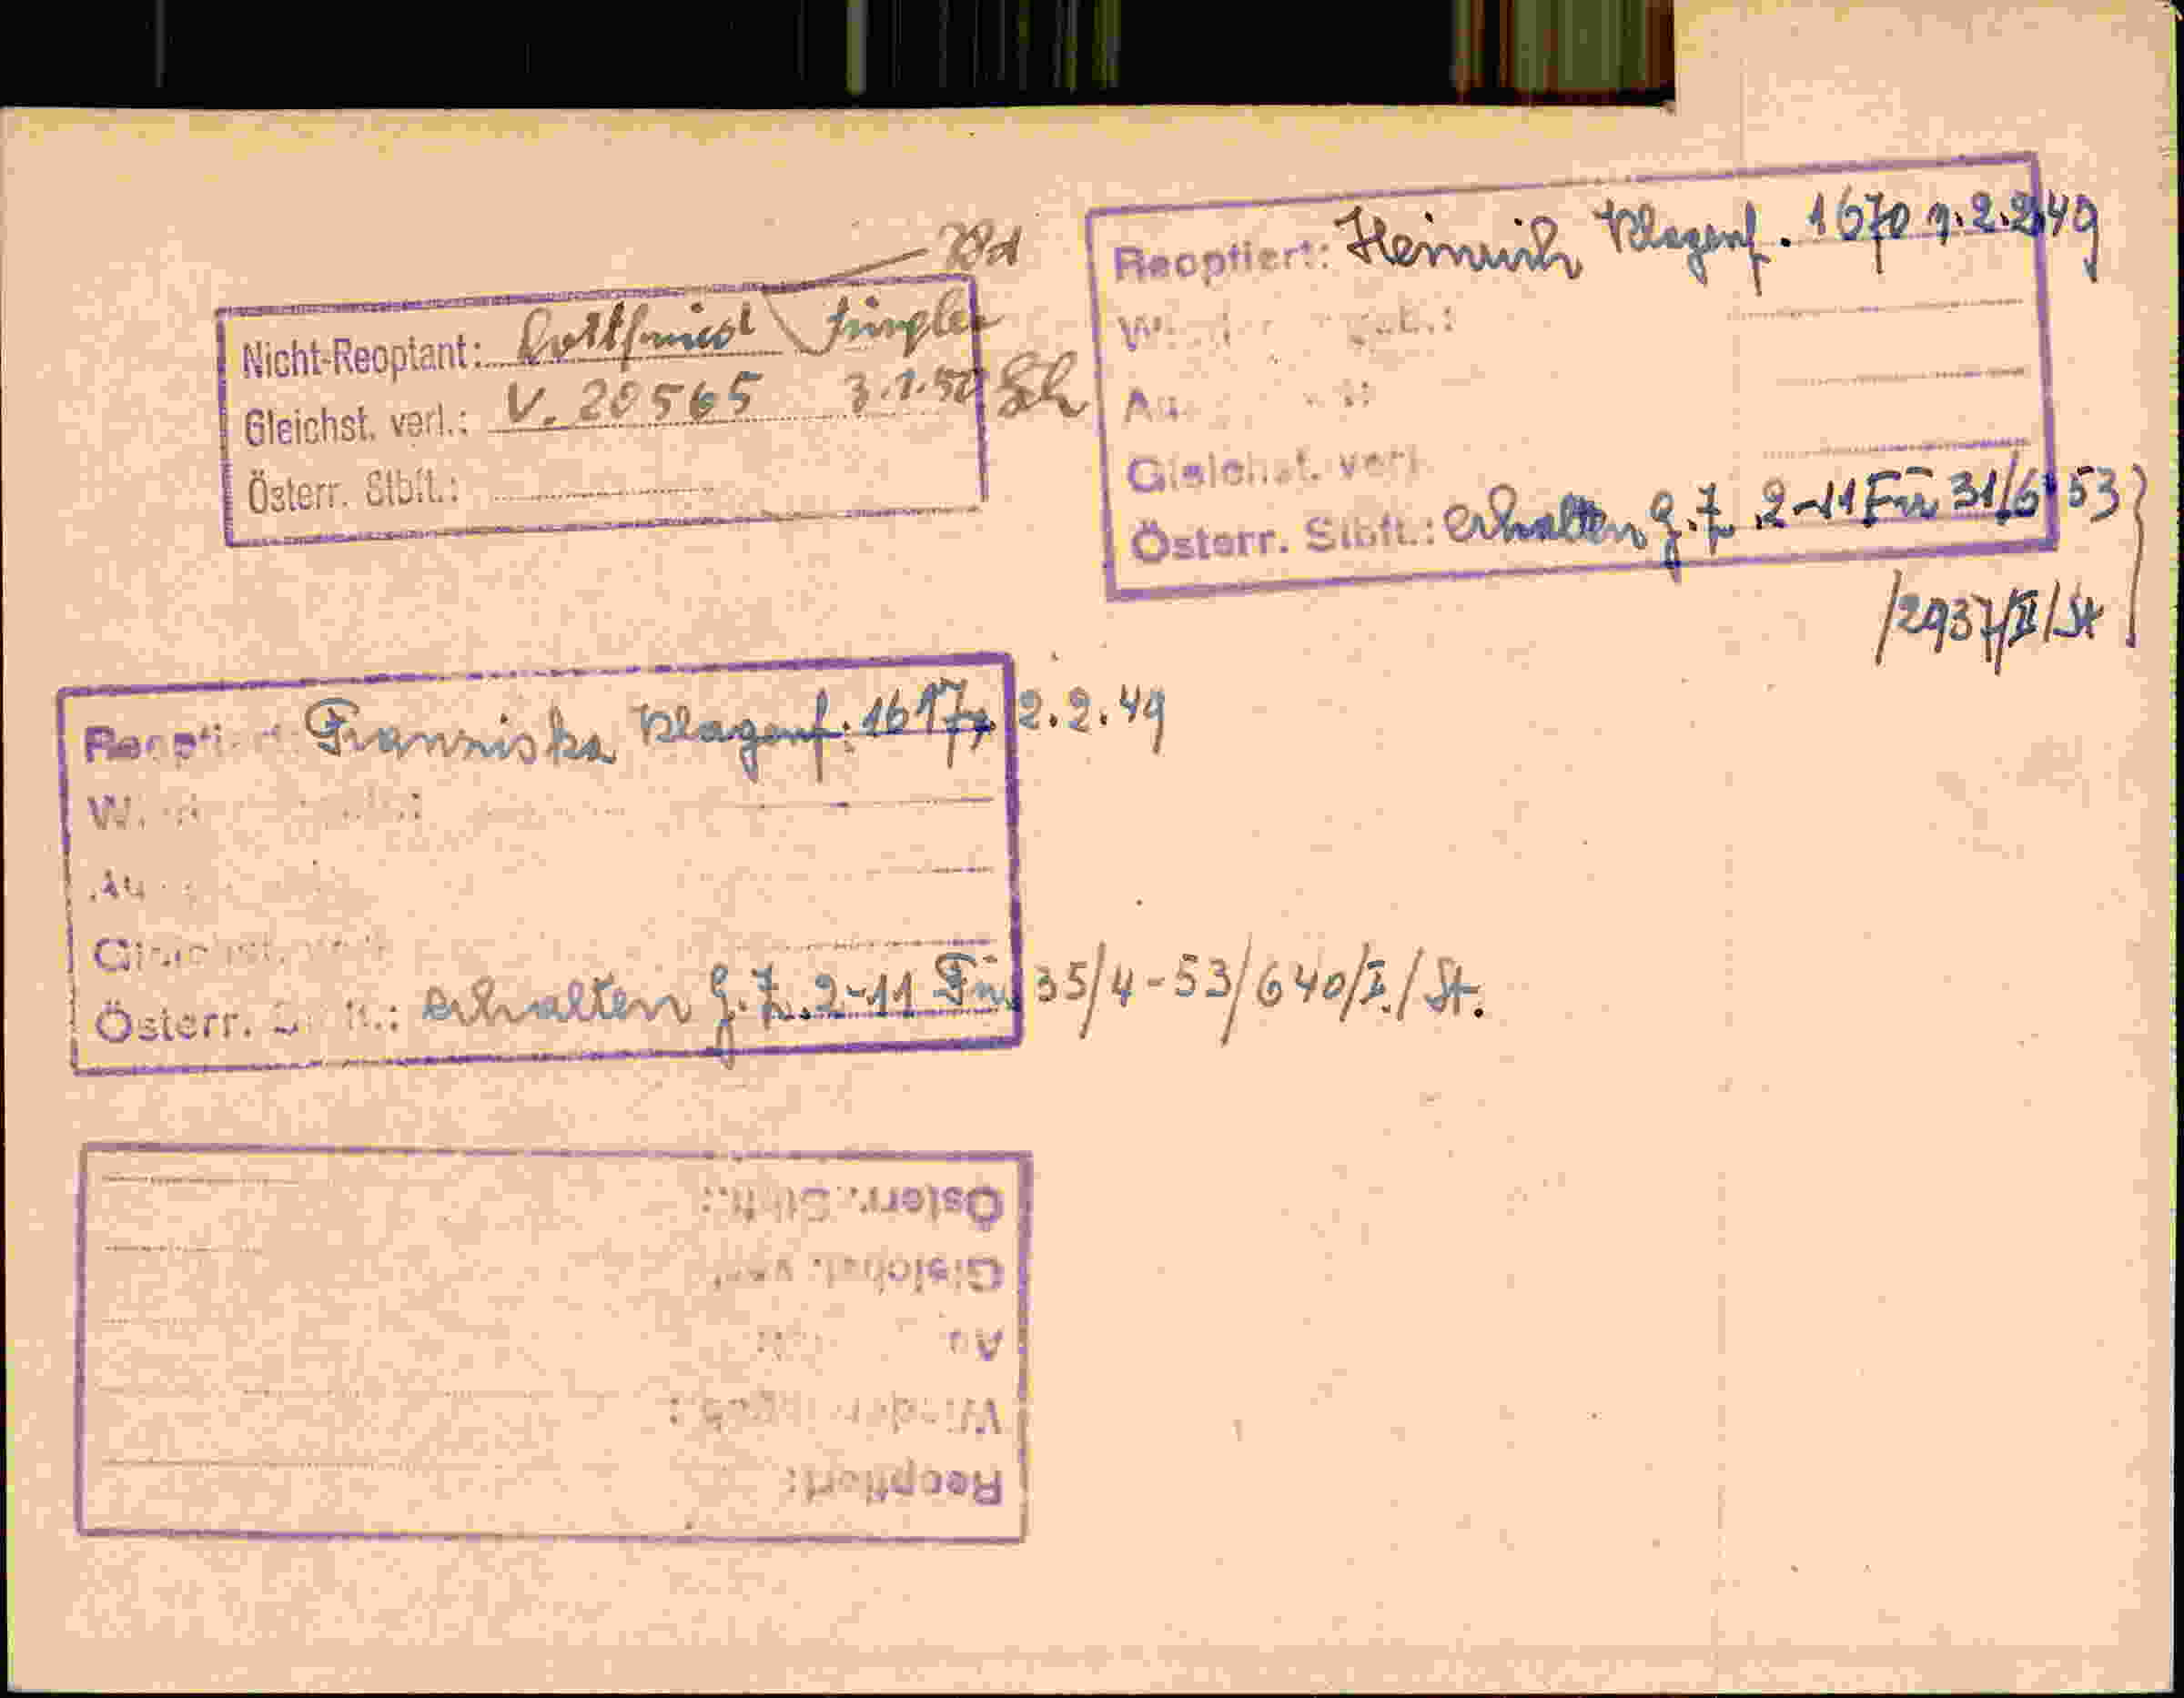 Nicht-Reoptant: Gottfried Jüngler
Gleichst. verl.: V. 20565 3.1.50
Österr. Stbft.:
Reoptiert: Heinrich Klagenf. 1670 v. 2.2.49
Gleichst. verl.
Österr. Stbft.: erhalten g. Z. 2-11 Fü 31/6 53
/2937/II/St
Reoptiert Franziska Klagenf: 1617 v. 2.2.49
Gleichst. verl.
Österr. Stbft.: erhalten g. Z. 2-11 Fü 35/4-53/640/I./St.
Österr. Stbft.:
Gleichst. verl.
Reoptiert: